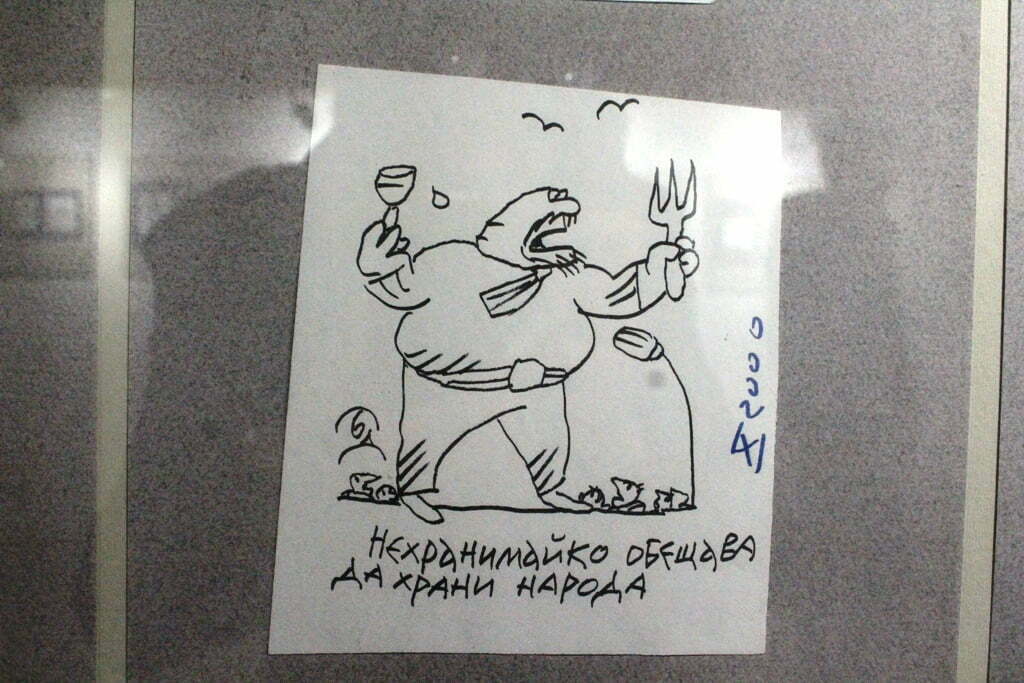 Нехранимайко обещава
да храни народа
2000